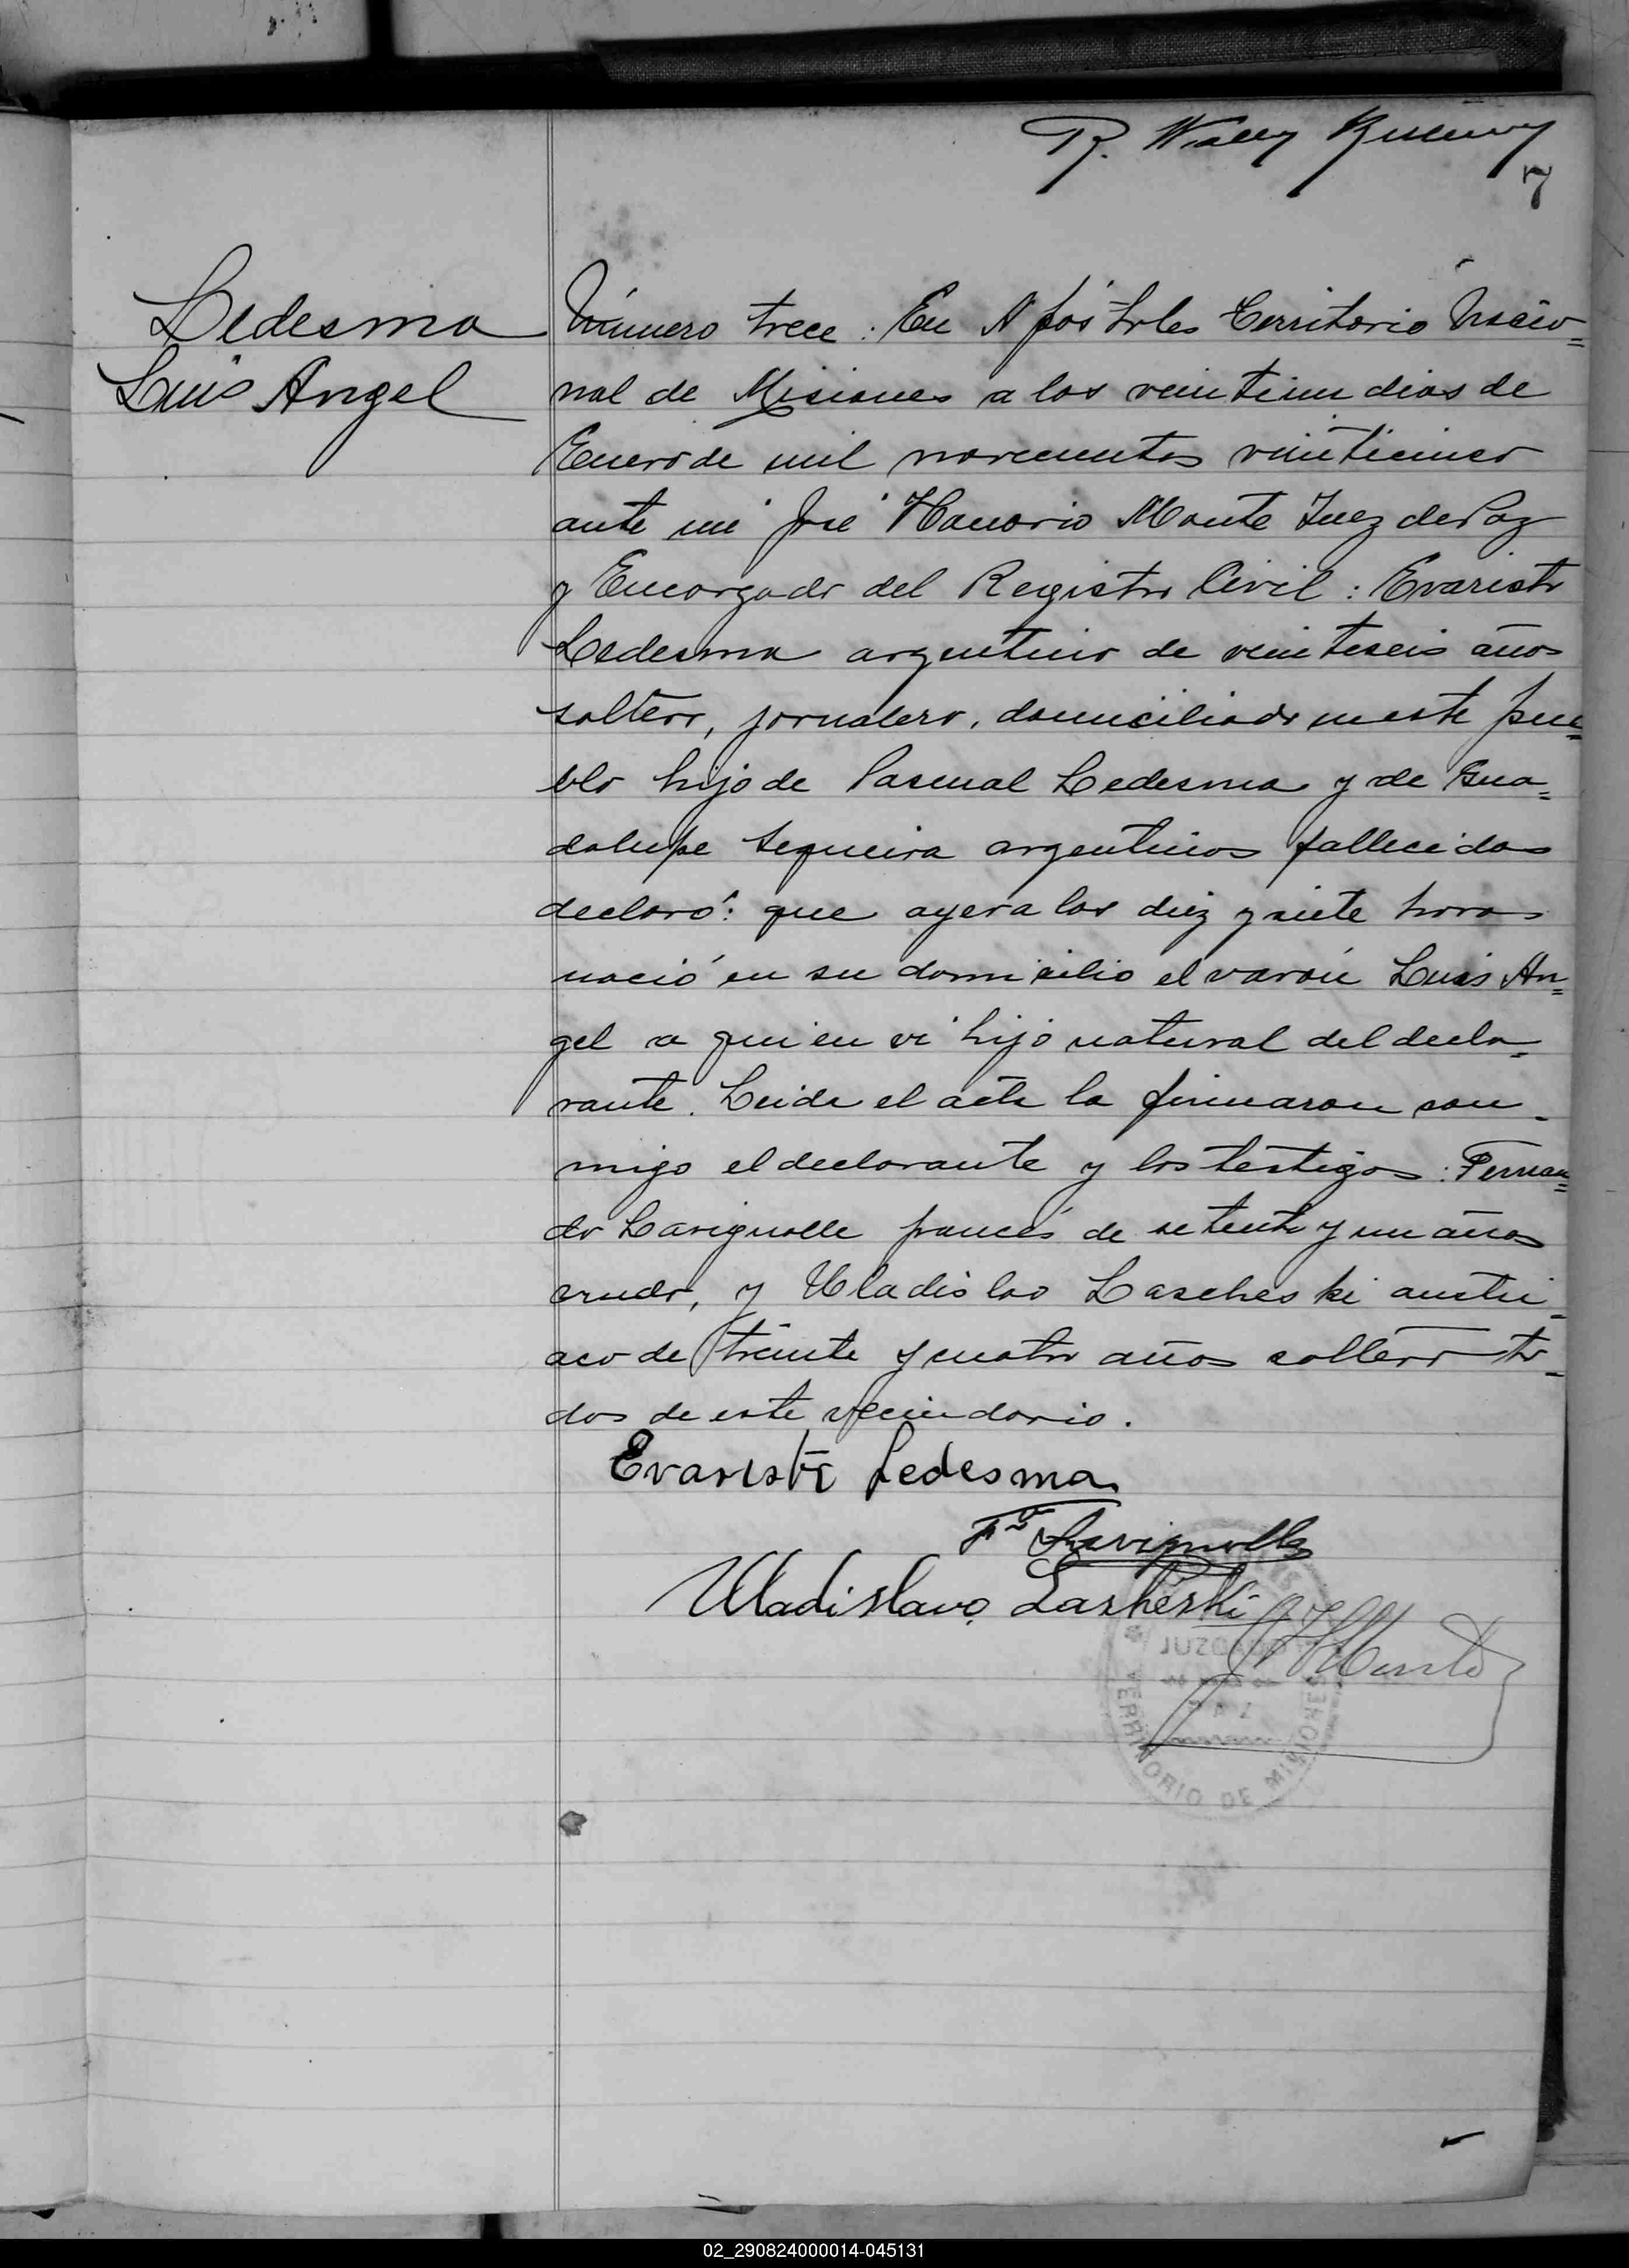 7
Ledesma
Luis Angel
Número trece: En Apóstoles Territorio Nacio=
nal de Misiones a los veintiun dias de
Enero de mil novecientos veinticinco
ante mi José Honorio Monte Juez de Paz
y Encargado del Registro Civil: Evaristo
Ledesma argentino de veinteseis años
soltero, jornalero, domiciliado en este pue=
blo hijo de Pascual Ledesma y de Gua=
dalupe Sequeira argentinos fallecidos
declaró: que ayer a las diez y siete horas
nació en su domicilio el varón Luis An=
gel a quien vi hijo natural del decla=
rante. Leida el acta la firmaron con-
migo el declarante y los testigos: Fernan=
do Lavignolle francés de setenta y un años
viudo, y Uladislao Lascheski austri-
aco de treinta y cuatro años soltero to-
dos de este vecindario.
Evaristo Ledesma
F. Lavignolle
Uladislavo Lasheski
JUZGADO
DE
PAZ
TERRITORIO DE MISIONES
02_290824000014-045131